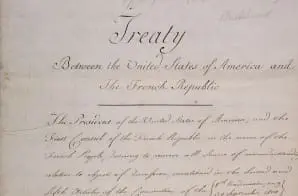 Treaty
Between the United States of America and
the French Republic
The President of the United States of America, and the
First Consul of the French Republic in the name of the
French People, desiring to remove all Source of misunderstanding
relative to objects of discussion mentioned in the Second and
fifth Articles of the Convention of the